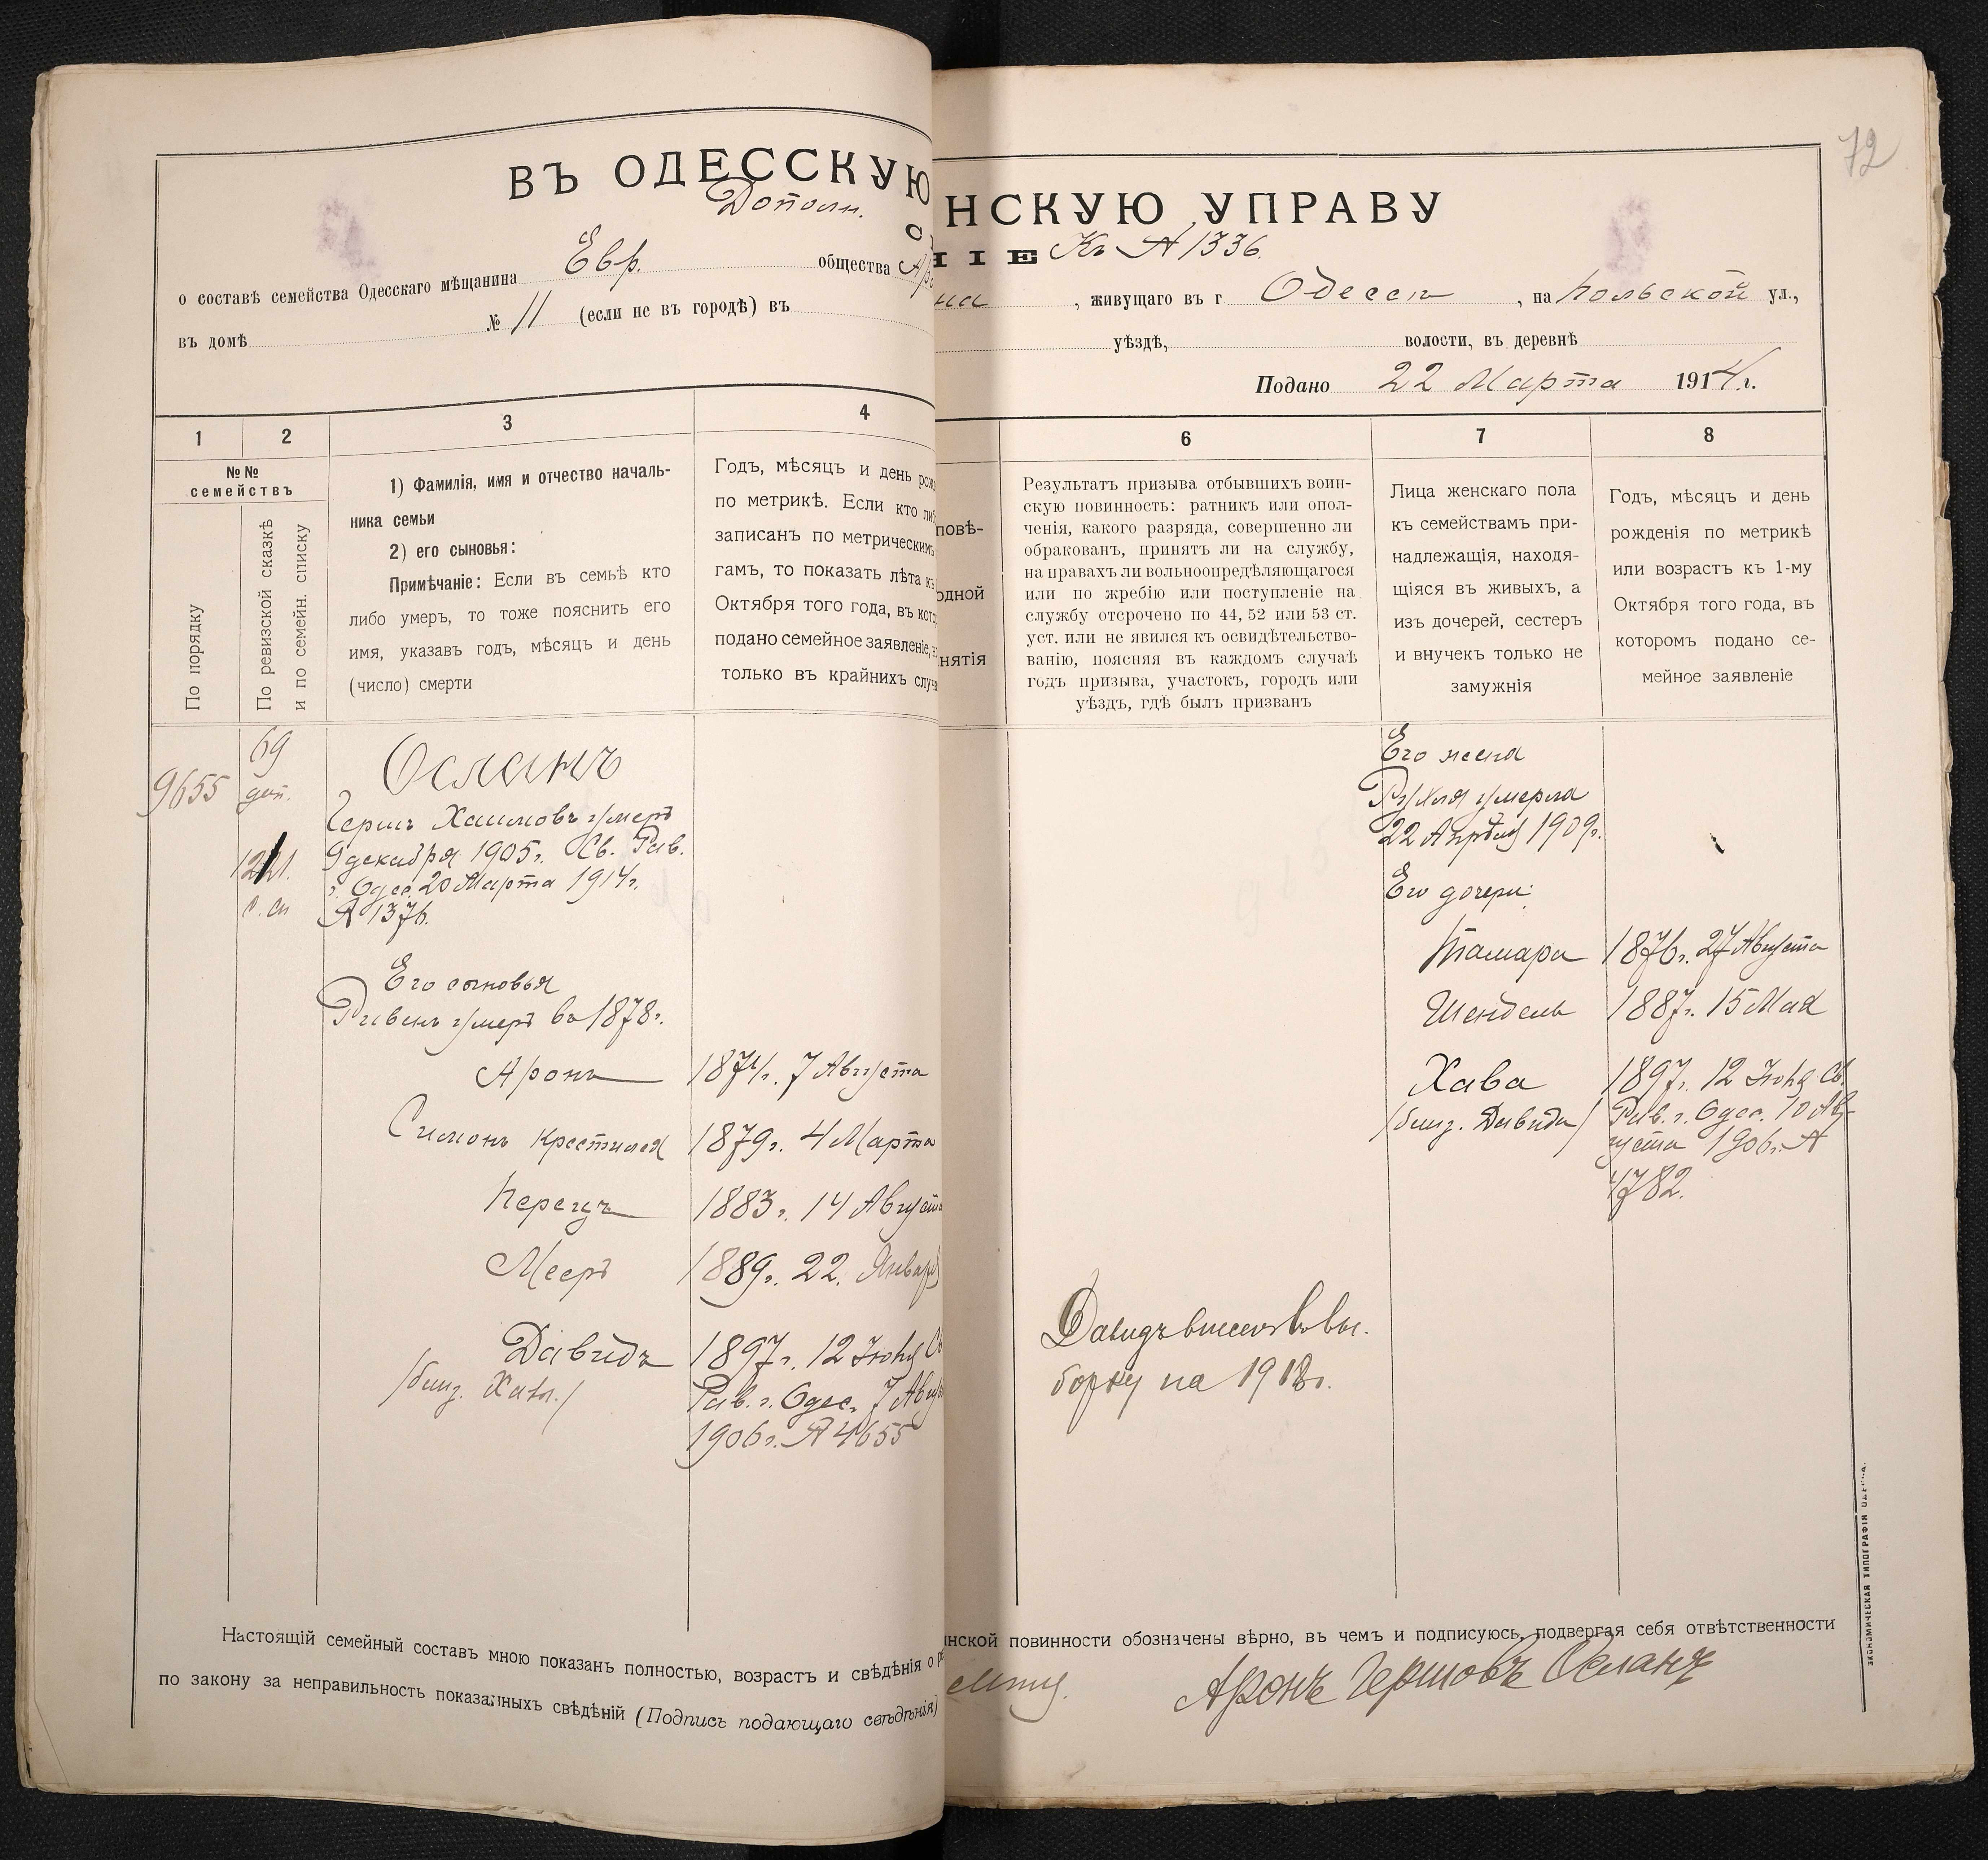 72
ВЪ ОДЕССКУЮ
НСКУЮ УПРАВУ
Дополн.
О
НІЕ Къ № 1336
о составѣ семейства Одесскаго мѣщанина Евр. общества
на , живущаго въ г Одессѣ , на Польской ул.,
въ домѣ № 11 (если не въ городѣ) въ
уѣздѣ, волости, въ деревнѣ
Подано 22 Марта 1914 г.
1
2
3
4
6
7
8
№№
семействъ
По порядку
По ревизской сказкѣ
и по семейн. списку
1) Фамилія, имя и отчество началь-
ника семьи
2) его сыновья:
Примѣчаніе: Если въ семьѣ кто
либо умеръ, то тоже пояснить его
имя, указавъ годъ, мѣсяцъ и день
(число) смерти
Годъ, мѣсяцъ и день рож
по метрикѣ. Если кто либ
записанъ по метрическимъ
гамъ, то показать лѣта къ
Октября того года, въ кото
подано семейное заявленіе, н
только въ крайнихъ случа
повѣ-
одной
нятія
Результатъ призыва отбывшихъ воин-
скую повинность: ратникъ или опол-
ченія, какого разряда, совершенно ли
обракованъ, принятъ ли на службу,
на правахъ ли вольноопредѣляющагося
или по жребію или поступленіе на
службу отсрочено по 44, 52 или 53 ст.
уст. или не явился къ освидѣтельство-
ванію, поясняя въ каждомъ случаѣ
годъ призыва, участокъ, городъ или
уѣздъ, гдѣ былъ призванъ
Лица женскаго пола
къ семействамъ при-
надлежащія, находя-
щіяся въ живыхъ, а
изъ дочерей, сестеръ
и внучекъ только не
замужнія
Годъ, мѣсяцъ и день
рожденія по метрикѣ
или возрастъ къ 1-му
Октября того года, въ
которомъ подано се-
мейное заявленіе
9655
69
доп.
с. сп
Осланъ
Гершъ Хаимовъ умеръ
9 декабря 1905 г. Св. Рав.
г. Одес. 20 Марта 1914 г.
№ 1376.
Его сыновья
Рувенъ умеръ въ 1878 г.
Аронъ 1874 г. 7 Августа
Симонъ крестился 1879 г. 4 Марта
Перецъ 1883 г. 14 Августа
Мееръ 1889 г. 22. Января
Давидъ 1897 г. 12 Іюня Св
/близ. Хавы./ Рав. г. Одес. 7 Авгу
1906 г. № 4655
Давидъ внесенъ въ вы-
борку на 1918 г.
Его жена
Рухля умерла
22 Апрѣля 1909 г.
Его дочери:
Тамара 1876 г. 27 Августа
Шендель 1887 г. 15 Мая
Хава 1897 г. 12 Іюня Св.
/близ. Давида/ Рав. г. Одес. 10 Ав-
густа 1906 г. №
4782.
Настоящій семейный составъ мною показанъ полностью, возрастъ и свѣдѣнія о
инской повинности обозначены вѣрно, въ чемъ и подписуюсь, подвергая себя отвѣтственности
по закону за неправильность показанныхъ свѣдѣній (Подпись подающаго свѣдѣнія)
Аронъ Гершовъ Осланъ
ЭКОНОМИЧЕСКАЯ ТИПОГРАФІЯ ОДЕССА.